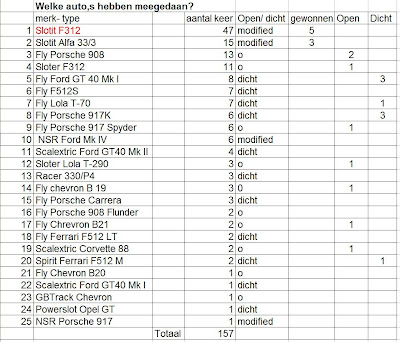 Welke auto,s hebben meegedaan?
merk- type aantal keer Open/ dicht gewonnen Open Dicht
1 Slotit F312 47 modified 5
2 Slotit Alfa 33/3 15 modified 3
3 Fly Porsche 908 13 o 2
4 Sloter F312 11 o 1
5 Fly Ford GT 40 Mk I 8 dicht 3
6 Fly F512S 7 dicht
7 Fly Lola T-70 7 dicht 1
8 Fly Porsche 917K 6 dicht 3
9 Fly Porsche 917 Spyder 6 o 1
10 NSR Ford Mk IV 6 modified
11 Scalextric Ford GT40 Mk II 4 dicht
12 Sloter Lola T-290 3 o 1
13 Racer 330/P4 3 dicht
14 Fly chevron B 19 3 0 1
15 Fly Porsche Carrera 3 dicht
16 Fly Porsche 908 Flunder 2 o
17 Fly Chrevron B21 2 o 1
18 Fly Ferrari F512 LT 2 dicht
19 Scalextric Corvette 88 2 o 1
20 Spirit Ferrari F512 M 2 dicht 1
21 Fly Chevron B20 1 o
22 Scalextric Ford GT40 Mk I 1 dicht
23 GBTrack Chevron 1 o
24 Powerslot Opel GT 1 dicht
25 NSR Porsche 917 1 modified
Totaal 157